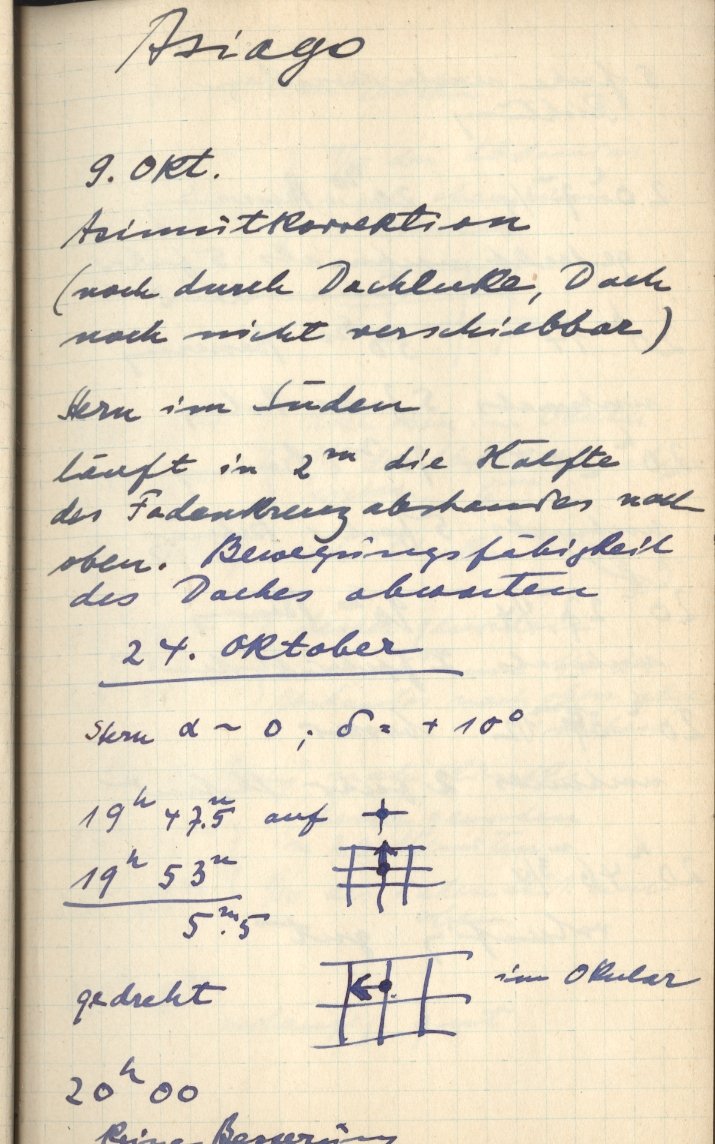 Asiago
9. Okt.
Azimutkorrektion
(noch durch Dachluke, Dach
noch nicht verschiebbar)
Stern im Süden
läuft in 2ᵐ die Hälfte
des Fadenkreuzabstandes nach
oben. Bewegungsfähigkeit
des Daches abwarten
24. Oktober
Stern α ~ 0 ; δ = + 10°
19ʰ 47.5ᵐ auf
19ʰ 53ᵐ
5ᵐ.5
gedreht im Okular
20ʰ 00
Keine Besserung